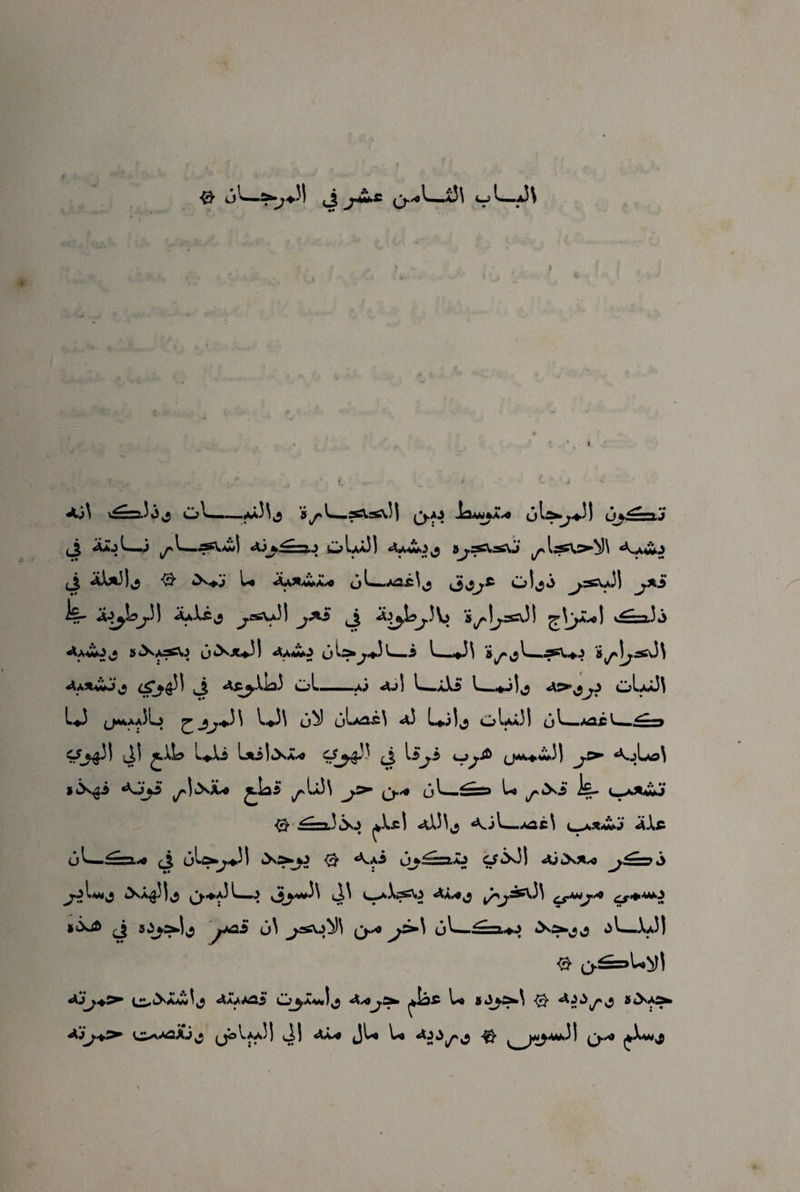 الباب الثامن عشر في المرجان
تكون المرجان متوسط بين الحجارة والنبات وذلك انه
يشبه الاحجار بتحجره ويشبه النبات بكونه شجار نابتة في
قعر البحر ذوات عروق واغصان متشعبة ما تمد والعلة في
ذلك امتزاج الحرارة بالرطوبة في قعر البحر وغلبة الرطوبة على
الحرارة بمجاورة الما فالمرجان يشبه المعدن بجسده ويشبه
النبات بروحه وانما قلنا انه نبات لطلوعه في الهوى وتشعبه
كاغصان النبات وانما له اغصان لان الما باليبس لما
اصابه حر الشمس هرب فرقا في الهوى متدافعا فلما الى الهوى
تشعب على قدر ما كان من حر النار قطع مقدار قوته فهذه
علة تشعب اغصانه والله اعلم بذلك
ذكر معدنه الذي يتكون فيه يوجد المرجان في مكان
يسمى مرسى الخرز ومنه يجلب الى السوق باليمن والهند وساير
البلاد ويوجد بمكان اخر من الابحر ان قصير واجوده في هذه
الاماكن
جيده ورديه اجوده ما عظم جرمه واستوت قصبته واشتدت حمرته
وسلم من السوس ورديه ما مال منه الى البياض ونقصت حمرته